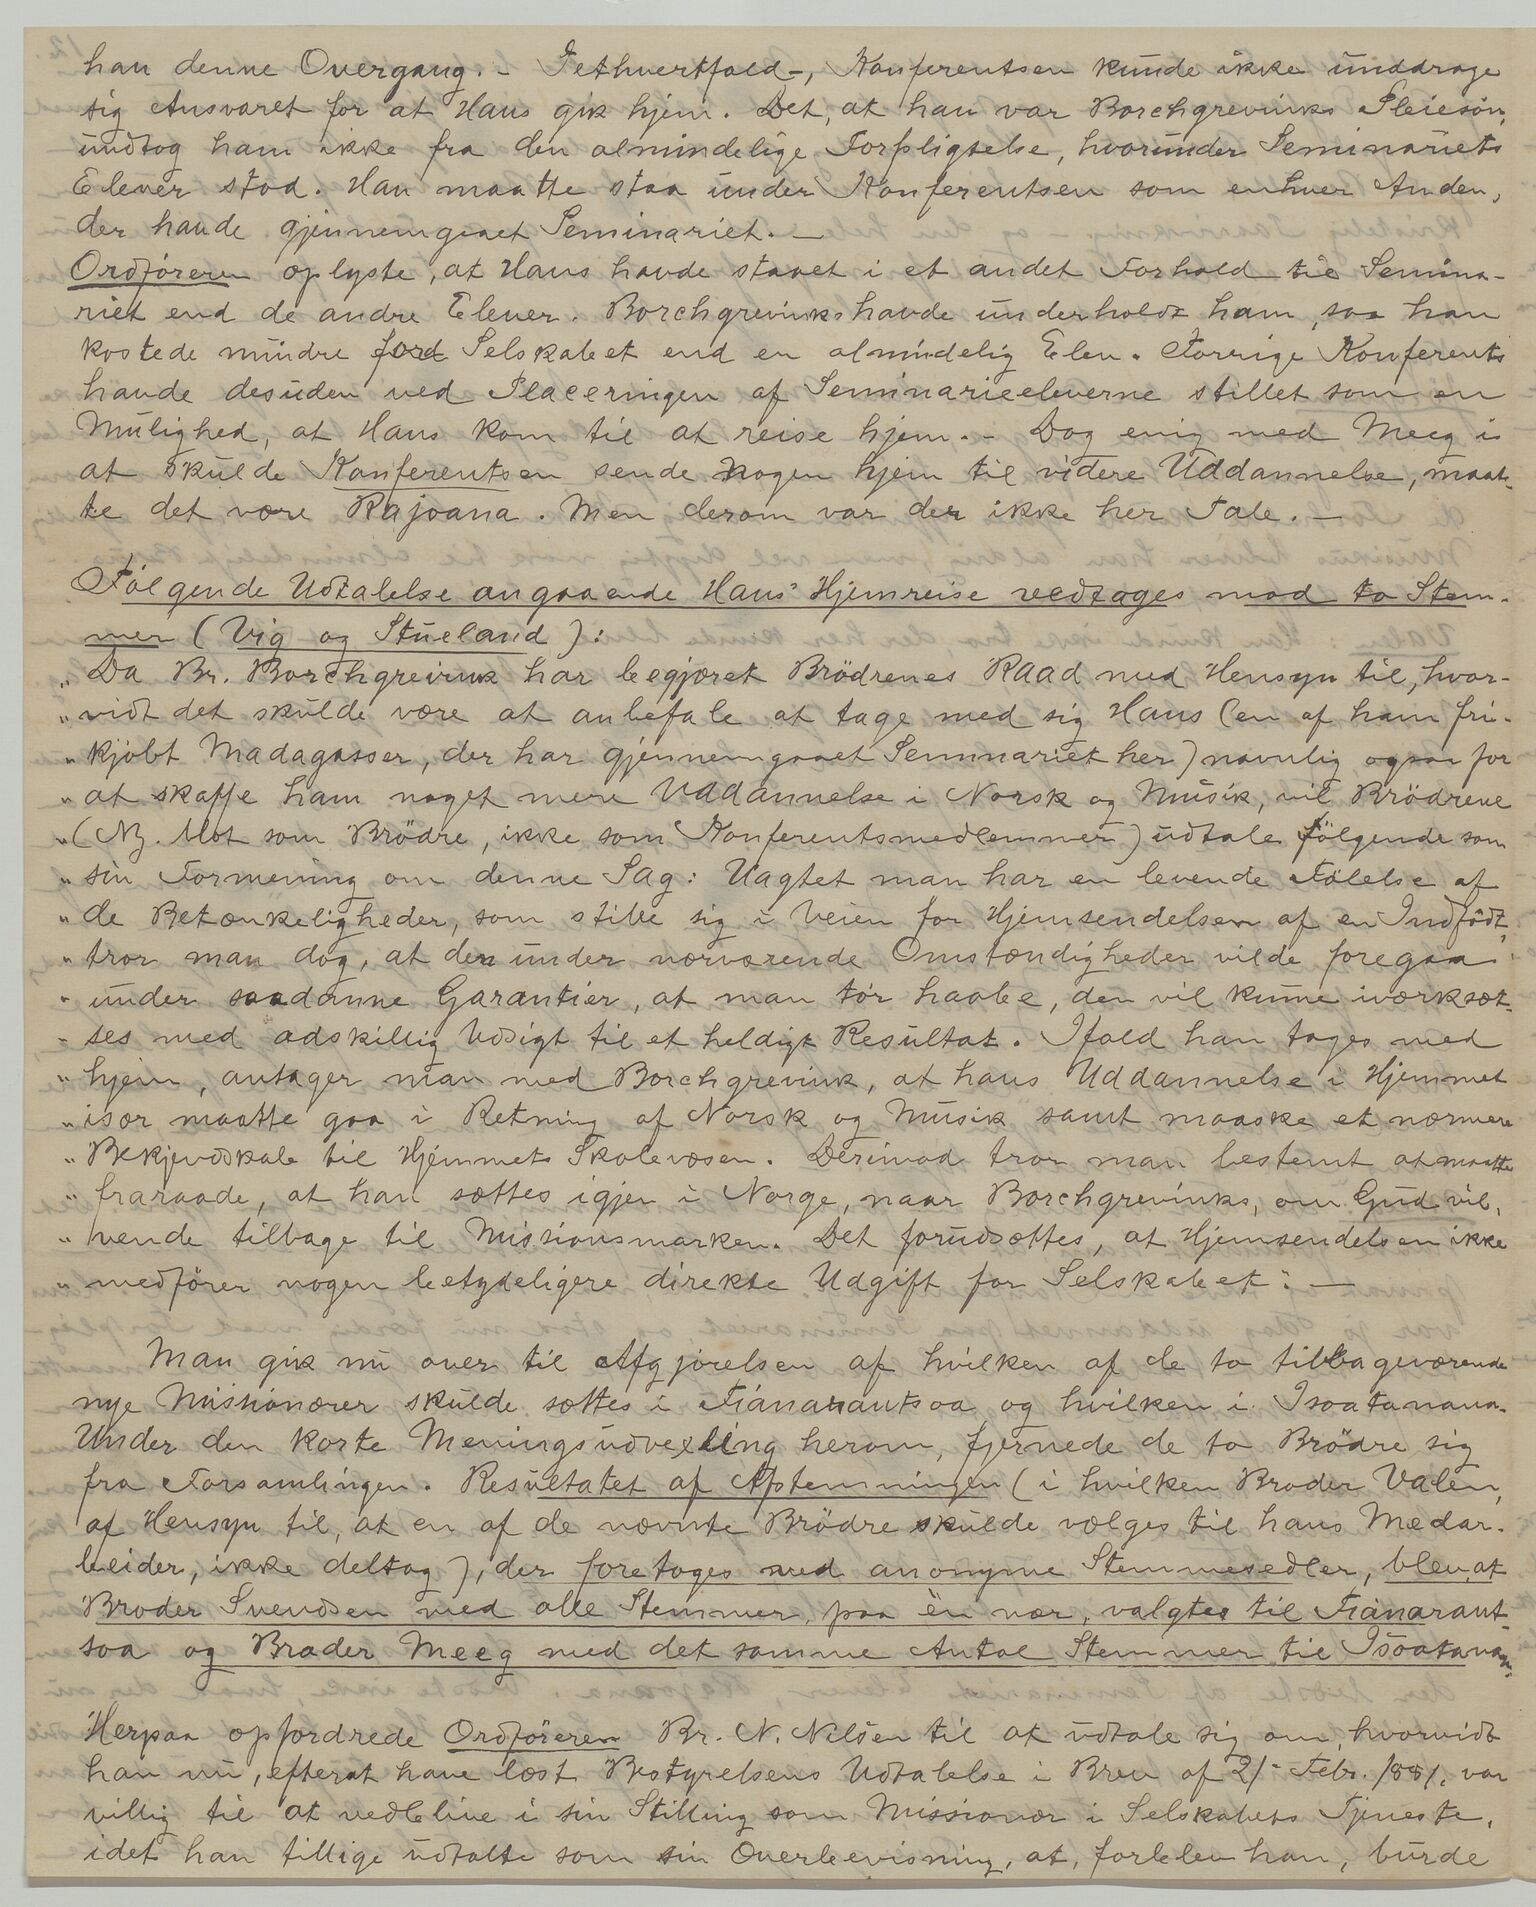 han denne Overgang. - I ethvertfald -, Konferentsen kunde ikke unddrage
sig Ansvaret for at Hans gik hjem. Det, at han var Borchgrevinks Pleiesön,
undtog ham ikke fra den almindelige Forpligtelse, hvorunder Seminariets
Elever stod. Han maatte staa under Konferentsen som enhver Anden,
der havde gjennemgaaet Seminariet. —
Ordföreren oplyste, at Hans havde staaet i et andet Forhold til Semina-
riet end de andre Elever. Borchgrevinks havde underholdt ham, saa han
kostede mindre for Selskabet end en almindelig Elev. Forrige Konferents
havde desuden ved Placeringen af Seminarieeleverne stillet som en
Mulighed, at Hans kom til at reise hjem. - Dog enig med Meeg i
at skulde Konferentsen sende nogen hjem til videre Uddannelse, maat-
te det være Rajoana. Men derom var der ikke her Tale. —
Fölgende Udtalelse angaaende Hans' Hjemreise vedtages mod to Stem-
mer (Vig og Stueland):
„ Da Br. Borchgrevink har begjæret Brödrenes Raad med Hensyn til, hvor-
„ vidt det skulde være at anbefale at tage med sig Hans (en af ham fri-
„ kjöbt Madagasser, der har gjennemgaaet Seminariet her) navnlig ogsaa for
„ at skaffe ham noget mere Uddannelse i Norsk og Musik, vil Brödrene
„ (NB. Blot som Brödre, ikke som Konferentsmedlemmer) udtale fölgende som
„ sin Formening om denne Sag: Uagtet man har en levende Fölelse af
„ de Betænkeligheder, som stille sig i Veien for Hjemsendelsen af en Indfödt,
„ tror man dog, at den under nærværende Omstændigheder vilde foregaa
„ under saadanne Garantier, at man tör haabe, den vil kunne iværksæt-
„ tes med adskillig Udsigt til et heldigt Resultat. Ifald han tages med
„ hjem, antager man med Borchgrevink, at hans Uddannelse i Hjemmet
„ især maatte gaa i Retning af Norsk og Musik samt maaske et nærmere
„ Bekjendskab til Hjemmets Skolevæsen. Derimod tror man bestemt at maatte
„ fraraade, at han sættes igjen i Norge, naar Borchgrevinks, om Gud vil,
„ vende tilbage til Missionsmarken. Det forudsættes, at Hjemsendelsen ikke
„ medförer nogen betydeligere direkte Udgift for Selskabet". —
Man gik nu over til Afgjörelsen af hvilken af de to tilbageværende
nye Missionærer skulde sættes i Fianarantsoa og hvilken i Isoatanana.
Under den korte Meningsudvexling herom, fjernede de to Brödre sig
fra Forsamlingen. Resultatet af Afstemningen (i hvilken Broder Valen,
af Hensyn til, at en af de nævnte Brödre skulde vælges til hans Medar-
beider, ikke deltog), der foretoges med anonyme Stemmesedler, blev, at
Broder Svendsen med alle Stemmer, paa èn nær, valgtes til Fianarant-
soa og Broder Meeg med det samme Antal Stemmer til Isoatanana.
Herpaa opfordrede Ordföreren Br. N. Nilsen til at udtale sig om, hvorvidt
han nu, efterat have læst Bestyrelsens Udtalelse i Brev af 2/- Febr. 1881. var
villig til at vedblive i sin Stilling som Missionær i Selskabets Tjeneste,
idet han tillige udtalte som sin Overbevisning, at, forblev han, burde